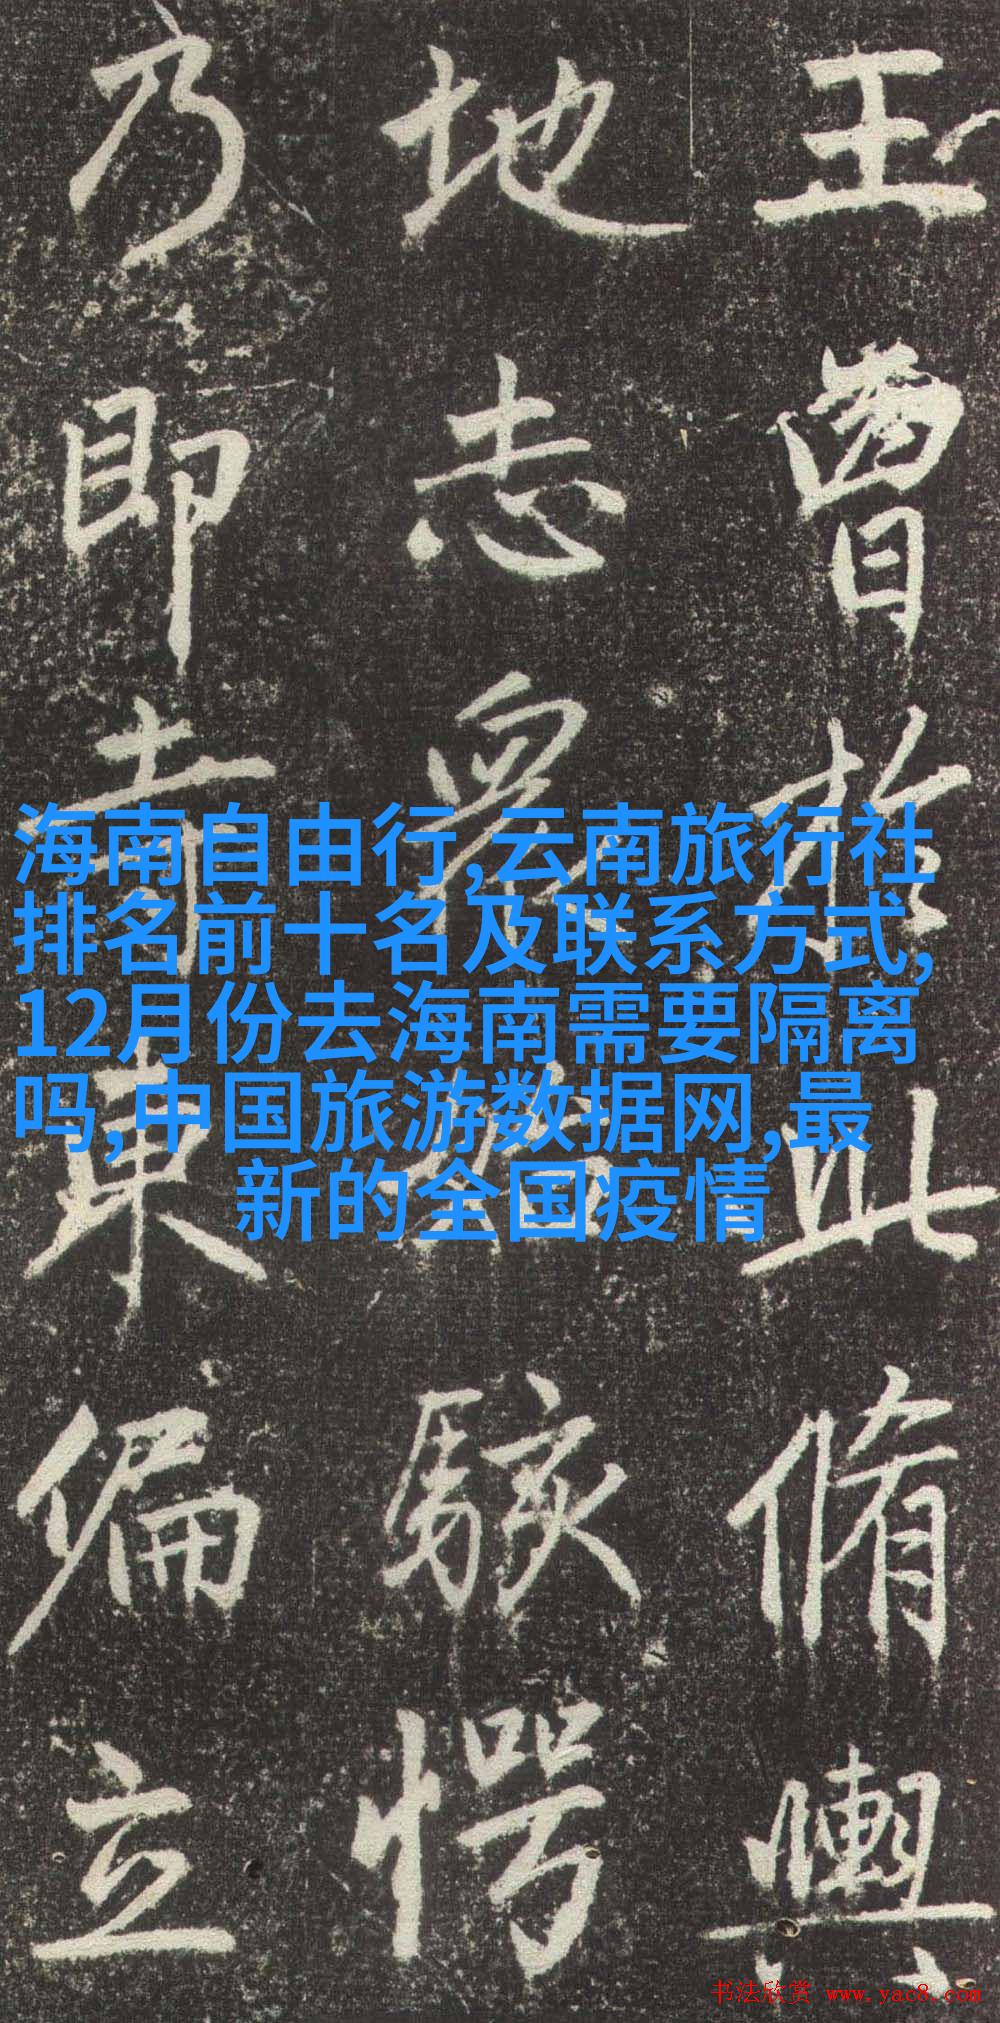 王曹於此脩輿
地志駭愕
乃即東偏立
海南自由行,云南旅行社
排名前十名及联系方式,
12月份去海南需要隔离
吗,中国旅游数据网,最
新的全国疫情
书法欣赏 www.yac8.com